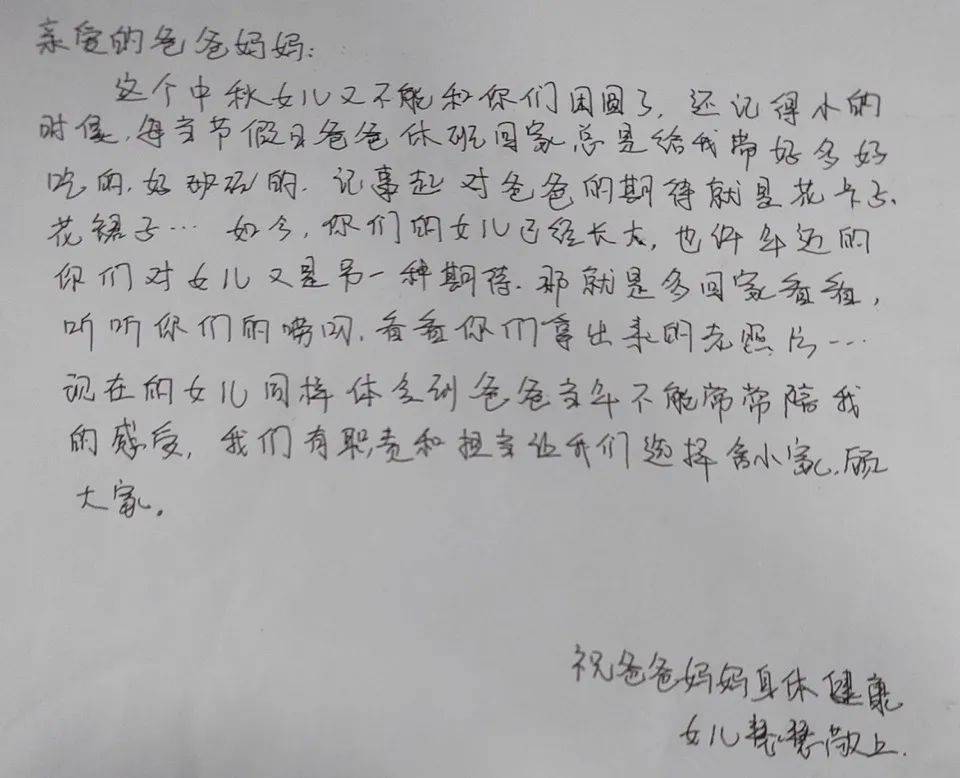 亲爱的爸爸妈妈:
这个中秋女儿又不能和你们团圆了,还记得小的
时候,每当节假日爸爸休班回家总是给我带好多好
吃的,好玩的.记事起对爸爸的期待就是花卡子、
花裙子…如今,你们的女儿已经长大,也许年迈的
你们对女儿又是另一种期待.那就是多回家看看,
听听你们的唠叨,看看你们拿出来的老照片…
现在的女儿同样体会到爸爸当年不能常常陪我
的感受,我们有职责和担当让我们选择舍小家,顾
大家。
祝爸爸妈妈身体健康
女儿慧慧敬上.